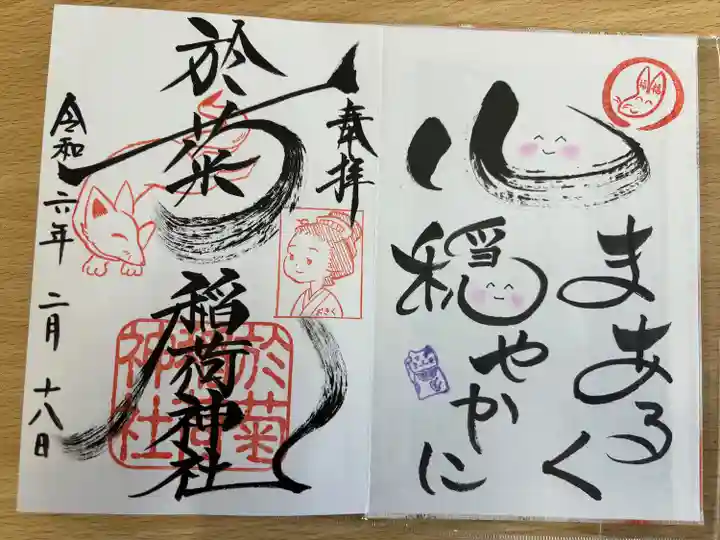 心
まあるく
穏やかに
奉拝
おきく
於菊稲荷神社
於菊稲荷神社
令和六年二月十八日